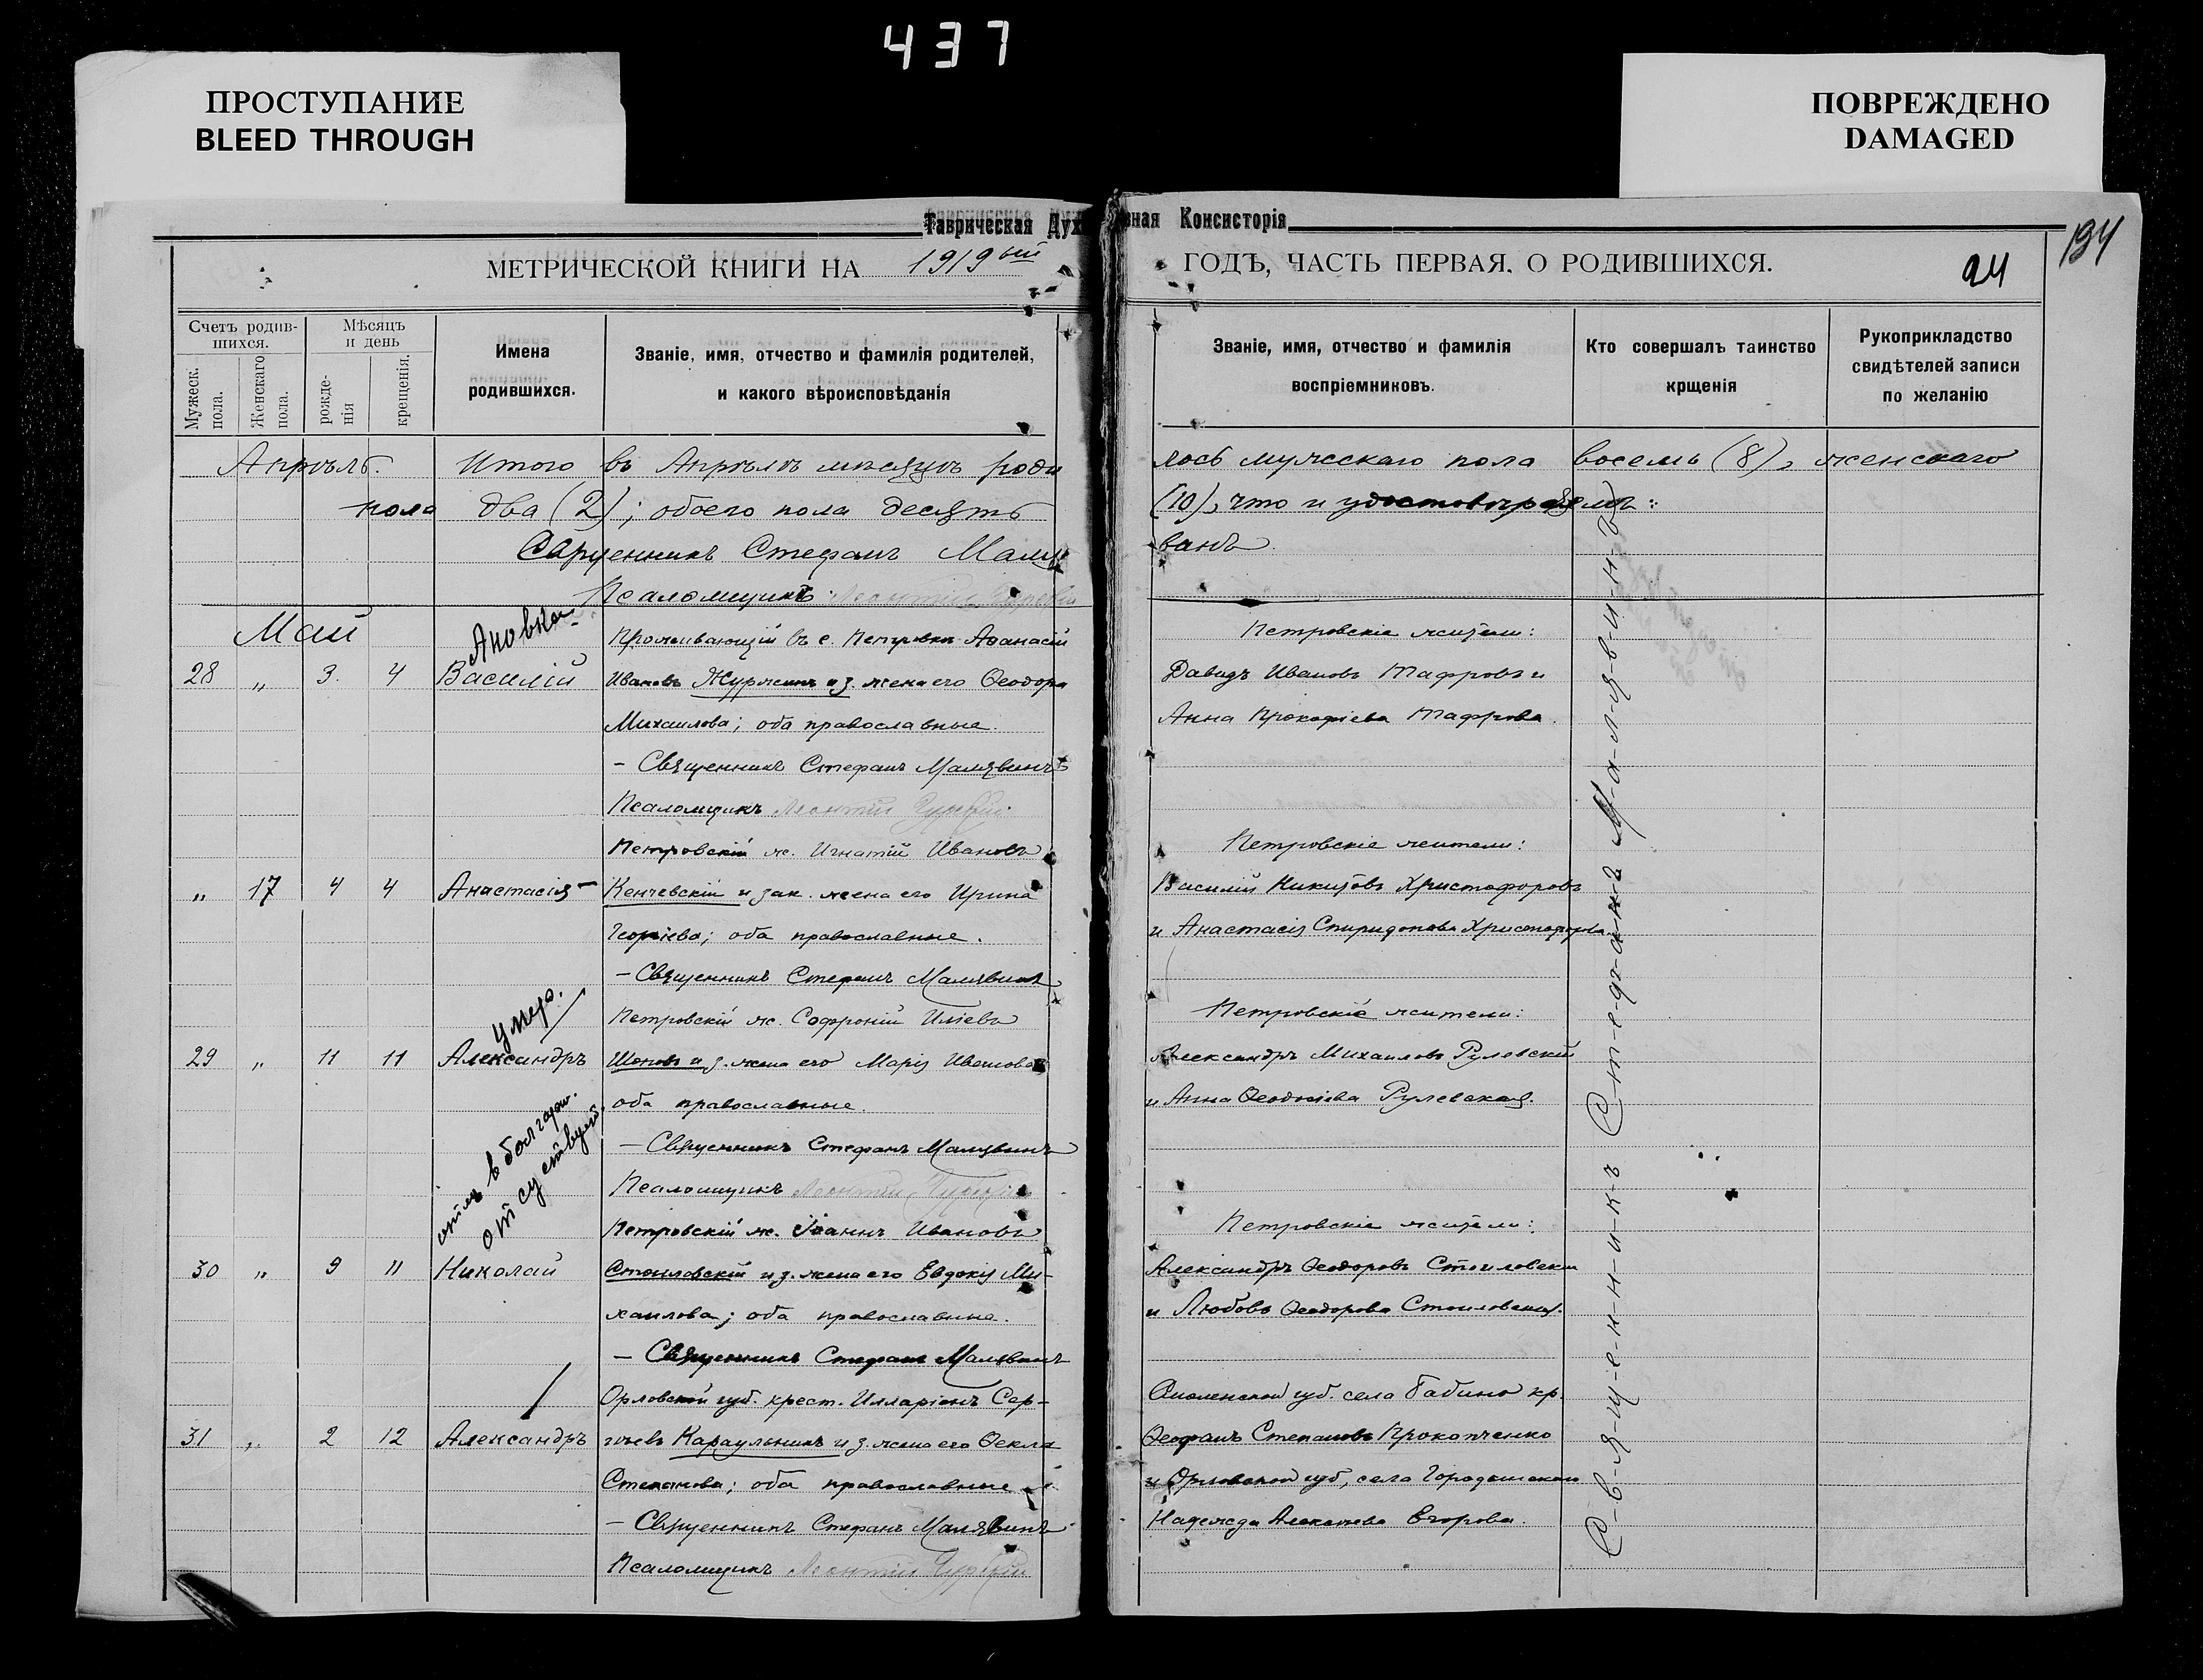 437
ПРОСТУПАНИЕ
BLEED THROUGH
ПОВРЕЖДЕНО
DAMAGED
Таврическая Духовная Консисторія
194
МЕТРИЧЕСКОЙ КНИГИ НА 1919ый ГОДѢ, ЧАСТЬ ПЕРВАЯ, О РОДИВШИХСЯ.
24
Счетъ родившихся.
Мужеск. пола.
Женскаго пола.
Мѣсяцъ и день
рожденія
крещенія.
Имена родившихся.
Званіе, имя, отчество и фамилія родителей, и какого вѣроисповѣданія
Званіе, имя, отчество и фамилія воспріемниковъ.
Кто совершалъ таинство крщенія
Рукоприкладство свидѣтелей записи по желанію
Апрѣль. Итого въ Апрѣлѣ мѣсяцѣ роди лось мужскаго пола восемь (8), женскаго
пола два (2); обоего пола десять (10), что и удостовѣряемъ:
Священникъ Стефанъ Маляванъ
Псаломщикъ Леонтій
Май
Проживающій въ с. Петровкѣ Аѳанасій
28 „ 3. 4 Василій Ивановъ Журжинъ и з. жена его Ѳеодора
Михаилова; оба православные.
– Священникъ Стефанъ Малявинъ
Псаломщикъ Леонтій
Петровскіе жители:
Давидъ Ивановъ Тафровъ и
Анна Прокофіева Тафрова.
Петровскій ж. Игнатій Ивановъ
„ 17 4 4 Анастасія – Кенчевскій и зак. жена его Ирина
Георгіева; оба православные.
– Священникъ Стефанъ Малявинъ
Петровскіе жители:
Василій Никитовъ Христофоровъ
и Анастасія Спиридонова Христофорова.
умер.
Петровскій ж. Софроній Иліевъ
29 „ 11 11 Александръ Шоповъ и з. жена его Марія Иванова
оба православные.
– Священникъ Стефанъ Малявинъ
Псаломщикъ Леонтій
Петровскіе жители:
Александръ Михаиловъ Рулевскій
и Анна Ѳеодосіева Рулевская.
отец в болгари.
отсуствует.
Петровскій ж. Іоаннъ Ивановъ
30 „ 9 11 Николай Стоиловскій и з. жена его Евдокія Ми-
хаилова; оба православные.
– Священникъ Стефанъ Малявинъ
Петровскіе жители:
Александръ Ѳеодоровъ Стоиловскій
и Любовь Ѳеодорова Стоиловская.
Орловской губ. крест. Илларіонъ Сер-
31 „ 2 12 Александръ гѣевъ Караульникъ и з. жена его Ѳекла
Степанова; оба православные
– Священникъ Стефанъ Малявинъ
Псаломщикъ Леонтій
Смоленской губ. села Бабино кр.
Ѳеофанъ Степановъ Прокопченко
и Орловской губ, села
Надежда Алексѣева Егорова.
С-в-я-щ-е-н-н-и-к-ъ С-т-е-ф-а-н-ъ М-а-л-я-в-и-н-ъ